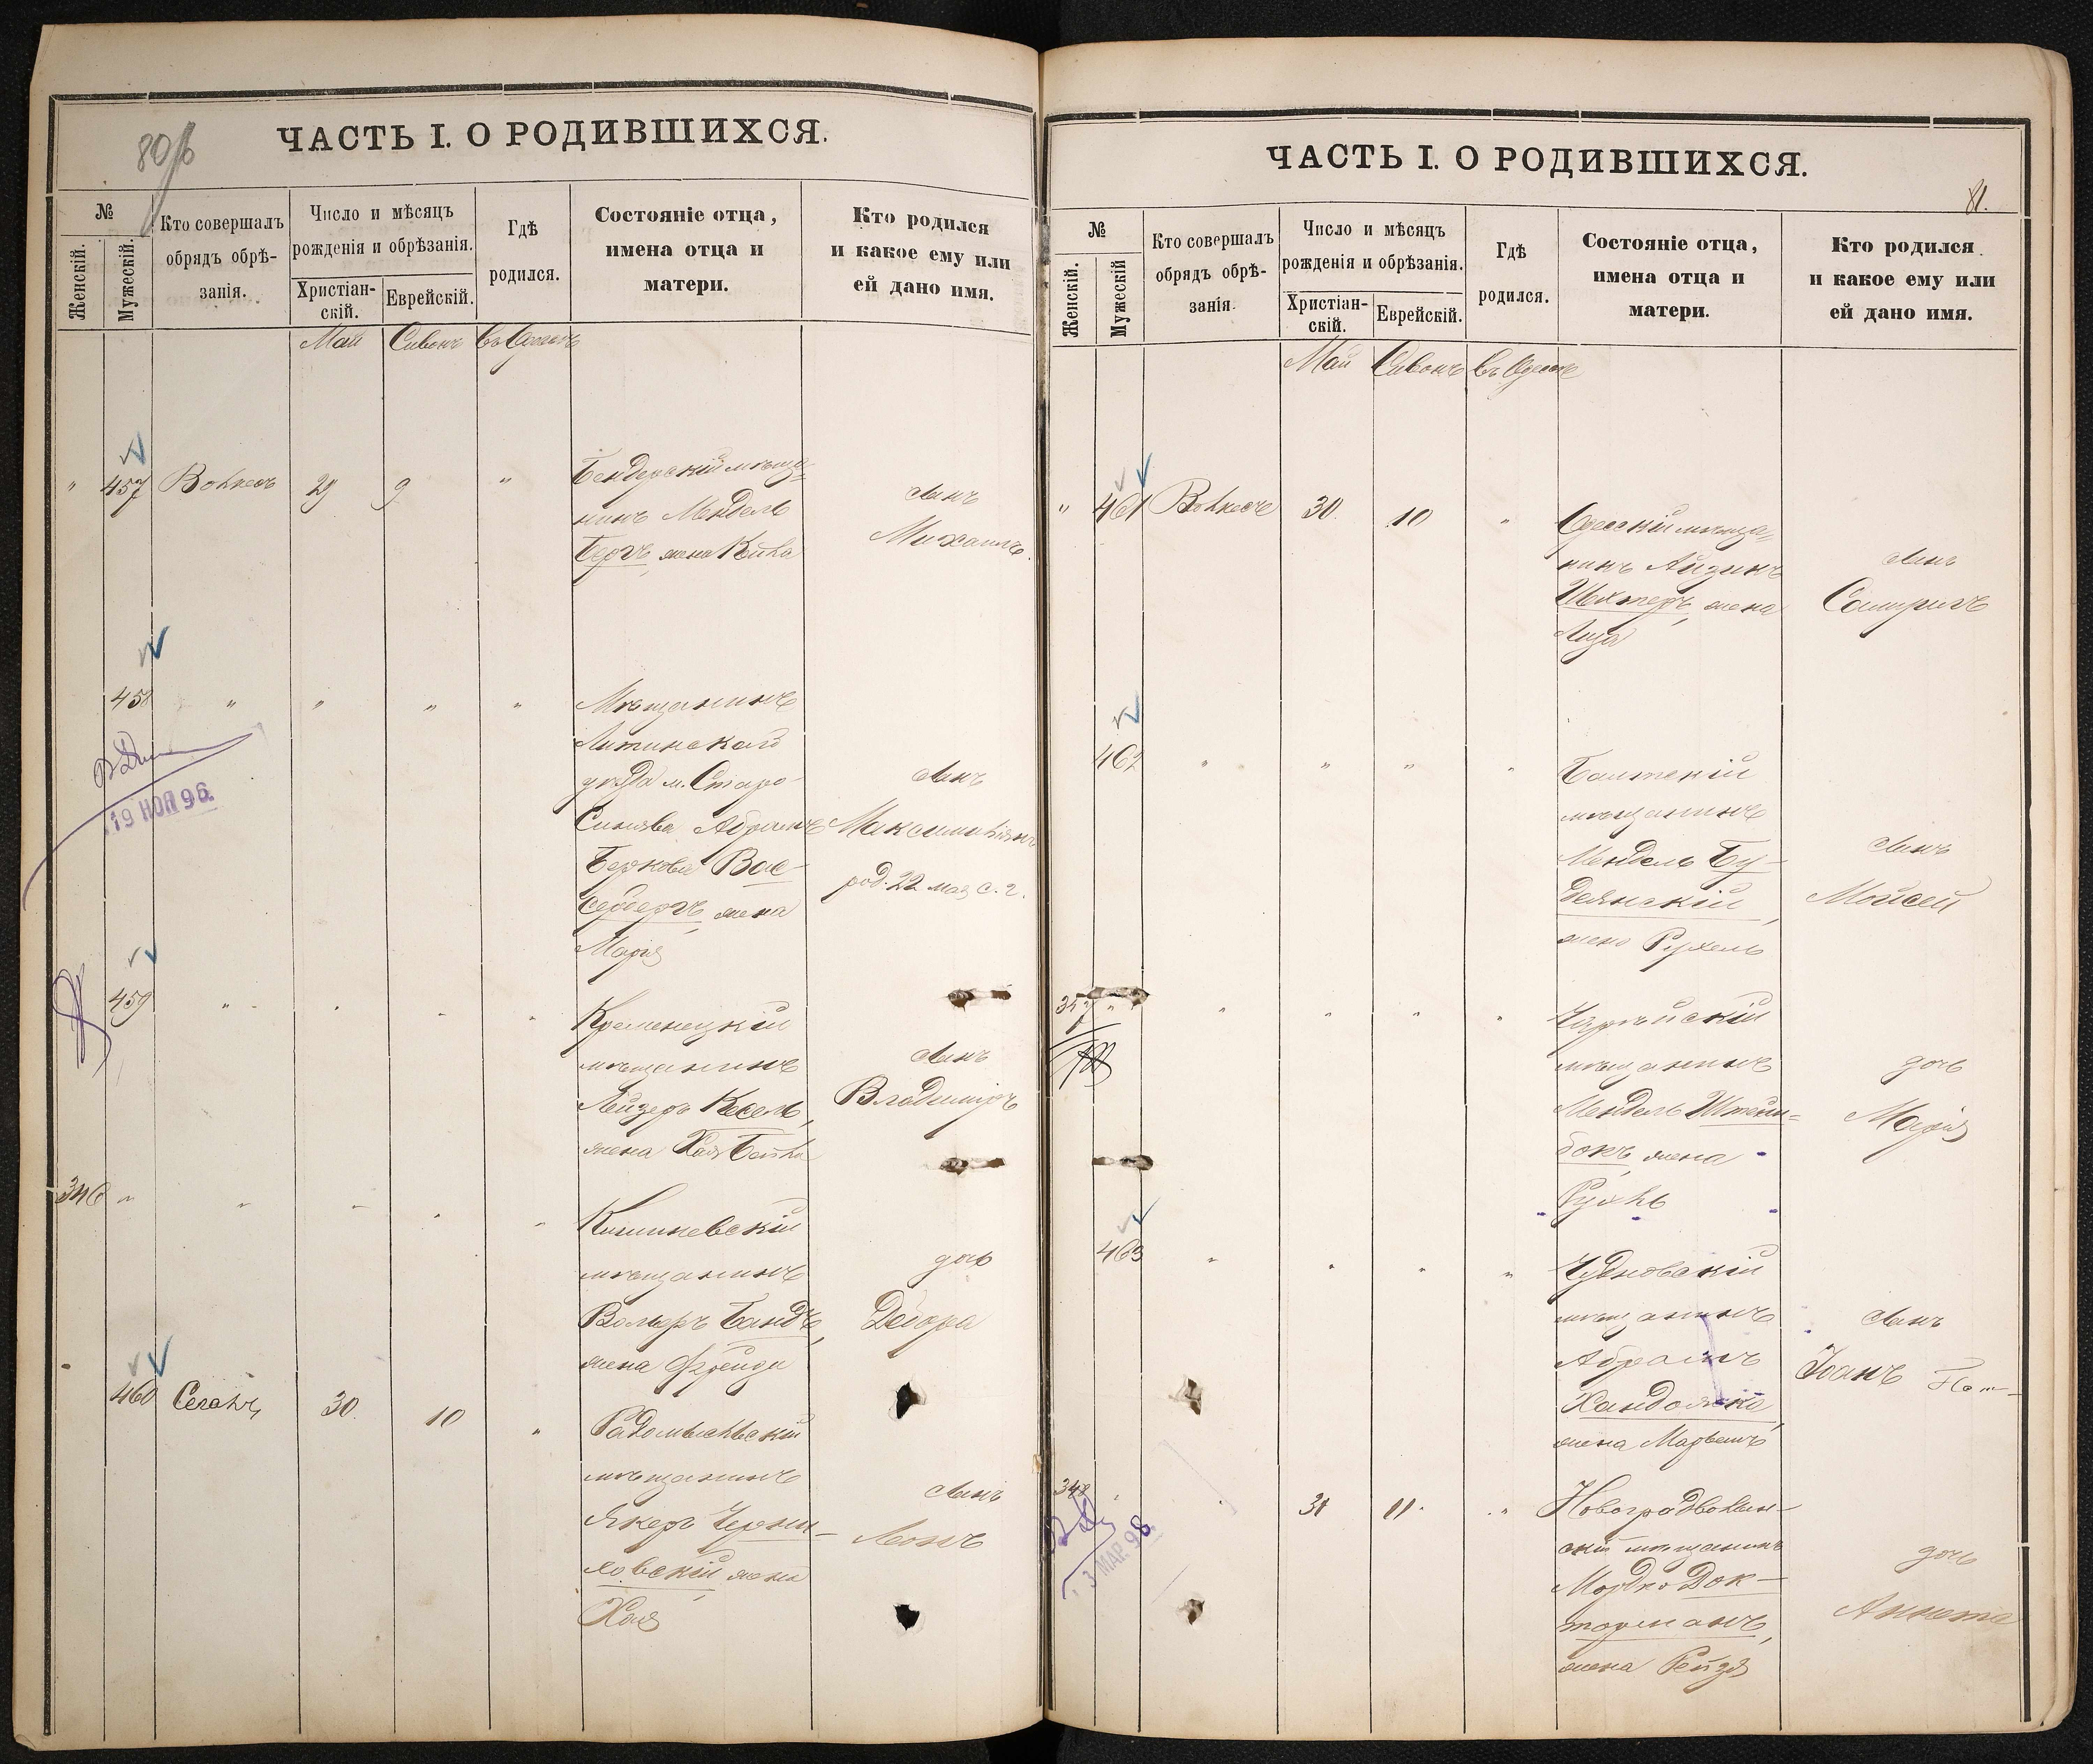 80/б
ЧАСТЬ I. О РОДИВШИХСЯ.
№
Женскій.
Мужескій.
Кто совершалъ
обрядъ обрѣ-
занія.
Число и мѣсяцъ
рожденія и обрѣзанія.
Христіан-
скій.
Еврейскій.
Гдѣ
родился.
Состояніе отца,
имена отца и
матери.
Кто родился
и какое ему или
ей дано имя.
Май Сивонъ Въ Одессѣ
" 457 29 9 "
Бендерскій мѣща-
нинъ Мендель
Бергъ, жена Кейла
сынъ
Михаилъ.
458 " " " "
Мѣщанинъ
Литинскаго
уѣзда м. Старо-
Синява Абрамъ
Берковъ Вас-
сербергъ, жена
Марія
сынъ
Максимиліянъ
род. 22 мая с. г.
19 НОЯ 96.
459 " " " "
Кременецкій
мѣщанинъ
Лейзеръ Кесель,
жена Хая Бейла
сынъ
Владиміръ
346 " " " " "
Кишиневскій
мѣщанинъ
Вольфъ Бандъ,
жена Фрейда
дочь
Дебора
460 Сегалъ 30. 10 "
Радомысльскій
мѣщанинъ
Янкель Черни-
ховскій жена
Хая
сынъ
Леонъ
ЧАСТЬ I. О РОДИВШИХСЯ.
81.
№
Женскій.
Мужескій
Кто совершалъ
обрядъ обрѣ-
занія.
Число и мѣсяцъ
рожденія и обрѣзанія.
Христіан-
скій.
Еврейскій.
Гдѣ
родился.
Состояніе отца,
имена отца и
матери.
Кто родился
и какое ему или
ей дано имя.
Май Сивонъ Въ Одессѣ
" 461 30. 10 "
Одесскій мѣща-
нинъ Айзикъ
Шехтеръ, жена
Лиза
сынъ
462 " " " "
Балтскій
мѣщанинъ
Мендель Бу-
деянскій,
жена Рухель
сынъ
Мойсей
347 " " " " "
мѣщанинъ
Мендель Штейн-
бокъ, жена
Рухль
дочь
Марія
463 " " " "
Чудновскій
мѣщанинъ
Абрамъ
жена Марьемъ
сынъ
Іоанъ
348 " " 31 11. "
Новоградволын-
скій мѣщанинъ
Мордко Док-
торманъ,
жена Рейзя
дочь
Аннета
3 МАР. 98.